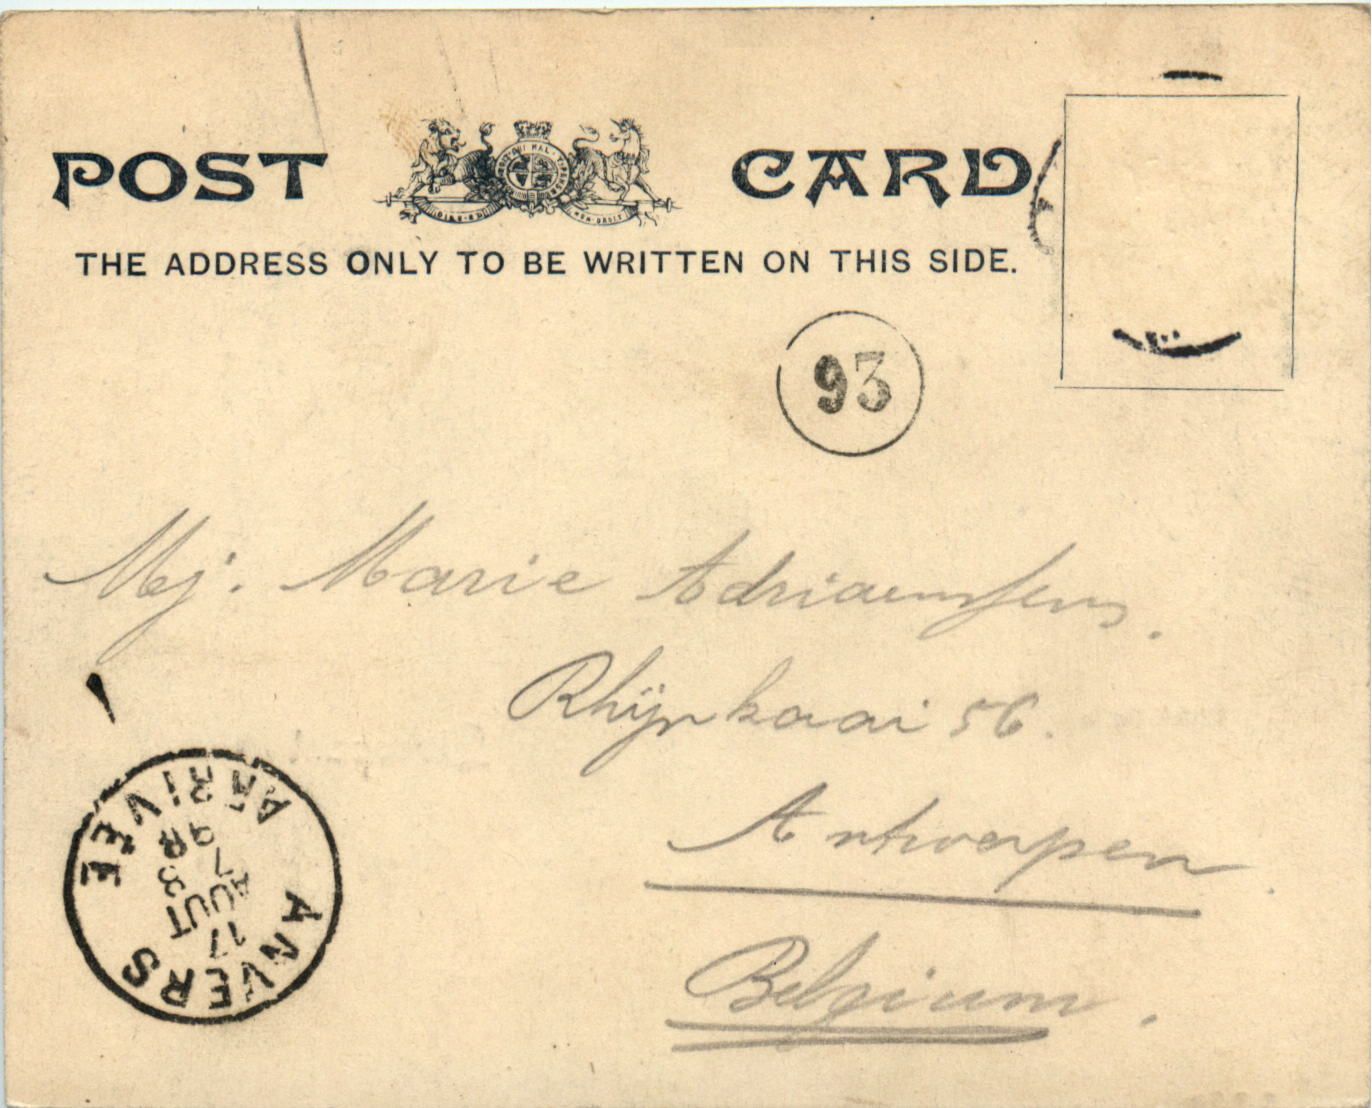 POST CARD
THE ADDRESS ONLY TO BE WRITTEN ON THIS SIDE.
93
Mej. Marie Adriaenssens.
Rhijnkaai 56.
Antwerpen
Belgium.
ANVERS
17
AOUT
ARRIVÉE